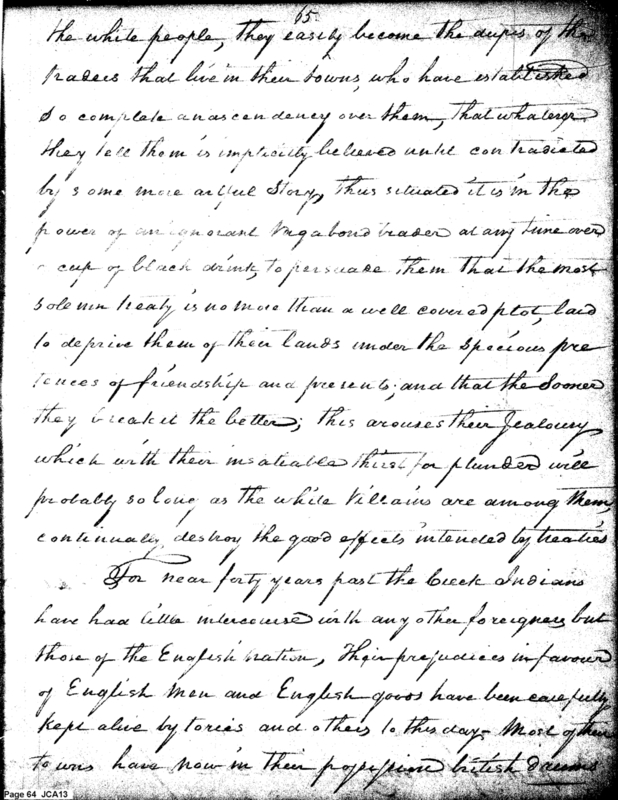 65
the white people, they easily become the dupes of the
traders that live in their towns, who have established
so complete an ascendency over them, that whatever
they tell them is implicitly believed until contradicted
by some more artful Story, thus situated it is in the
power of an ignorant Vagabond trader at any time over
a cup of black drink, to persuade them that the most
solemn treaty is no more than a well covered plot, laid
to deprive them of their lands under the specious pre
tences of friendship and presents; and that the Sooner
they break it the better; this arouses their Jealousy
which with their insatiable thirst for plunder will
probably so long as the white Villains are among them,
continually destroy the good effects intended by treaties
For near forty years past the Creek Indians
have had little intercourse with any other foreigners but
those of the English nation, Their prejudices in favour
of English men and English goods have been carefully
kept alive by tories and others to this day - Most of their
towns have now in their possession british drums
Page 64 JCA13